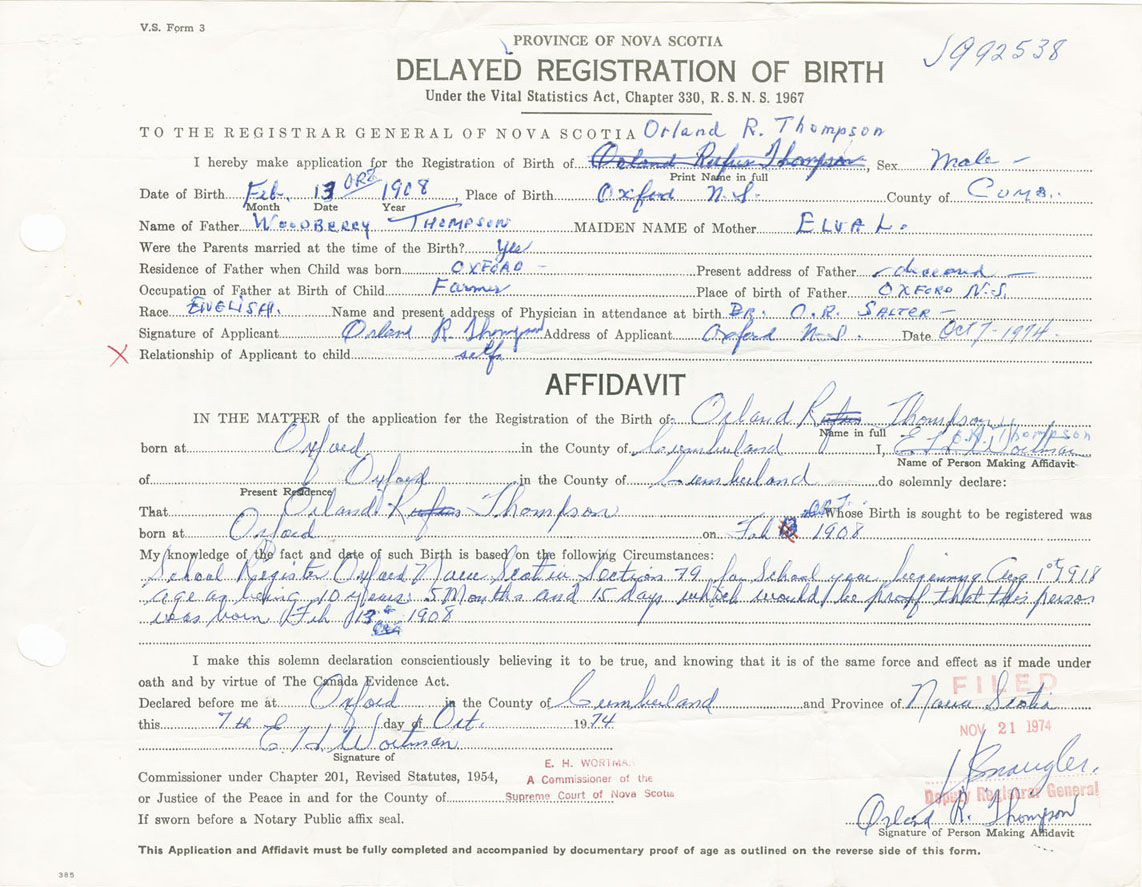 V.S. Form 3
PROVINCE OF NOVA SCOTIA
1992538
DELAYED REGISTRATION OF BIRTH
Under the Vital Statistics Act, Chapter 330, R.S.N.S. 1967
TO THE REGISTRAR GENERAL OF NOVA SCOTIA Orland R. Thompson
I hereby make application for the Registration of Birth of Orland Rufus Thompson, Sex Male -
Print Name in full
Date of Birth Feb. 13 ORT 1908, Place of Birth Oxford N.S. County of CUMB.
Month Date Year
Name of Father WOODBERRY THOMPSON MAIDEN NAME of Mother ELVA L.
Were the Parents married at the time of the Birth? Yes
Residence of Father when Child was born OXFORD - Present address of Father - deceased -
Occupation of Father at Birth of Child Farmer Place of birth of Father OXFORD N.S.
Race ENGLISH. Name and present address of Physician in attendance at birth DR. O.R. SALTER -
Signature of Applicant Orland R. Thompson Address of Applicant Oxford N.S. Date Oct 7 - 1974
X Relationship of Applicant to child self
AFFIDAVIT
IN THE MATTER of the application for the Registration of the Birth of: Orland Rufus Thompson
Name in full
born at Oxford in the County of Cumberland I, E H Wortman O.R. Thompson
Name of Person Making Affidavit
of Oxford in the County of Cumberland do solemnly declare:
Present Residence
That Orland Rufus Thompson Whose Birth is sought to be registered was
born at Oxford on Feb 13 O.R.T. 1908
My knowledge of the fact and date of such Birth is based on the following Circumstances:
School Register Oxford Nova Scotia Section 79 for School year beginning Aug 1st 1918
age as being 10 years 5 Months and 15 days which would be proof that this person
was born Feb 13th 1908
I make this solemn declaration conscientiously believing it to be true, and knowing that it is of the same force and effect as if made under
oath and by virtue of The Canada Evidence Act.
FILED
Declared before me at Oxford in the County of Cumberland and Province of Nova Scotia
this 7th day of Oct. 1974
NOV 21 1974
E H Wortman
Signature of
E. H. WORTMAN
Commissioner under Chapter 201, Revised Statutes, 1954,
A Commissioner of the
or Justice of the Peace in and for the County of
Supreme Court of Nova Scotia
Deputy Registrar General
If sworn before a Notary Public affix seal.
Orland R. Thompson
Signature of Person Making Affidavit
This Application and Affidavit must be fully completed and accompanied by documentary proof of age as outlined on the reverse side of this form.
385